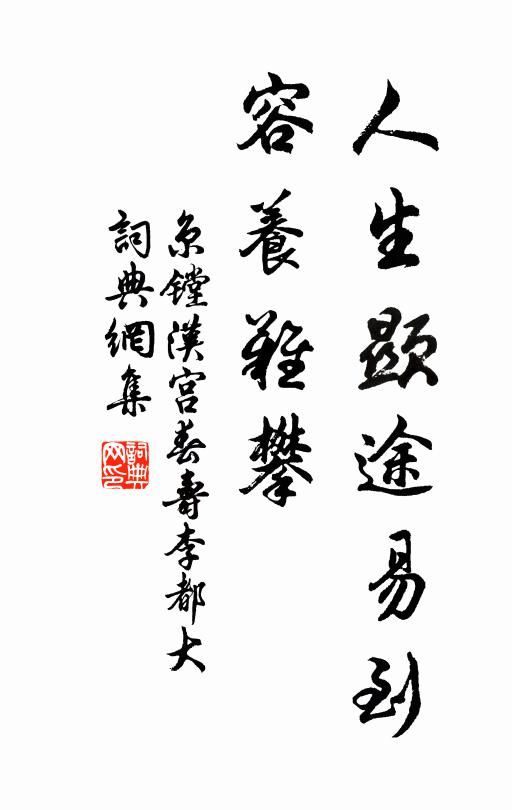 人生顯途易到
容養難攀
京鏜漢宮春壽李都大
詞典網集
詞典網印